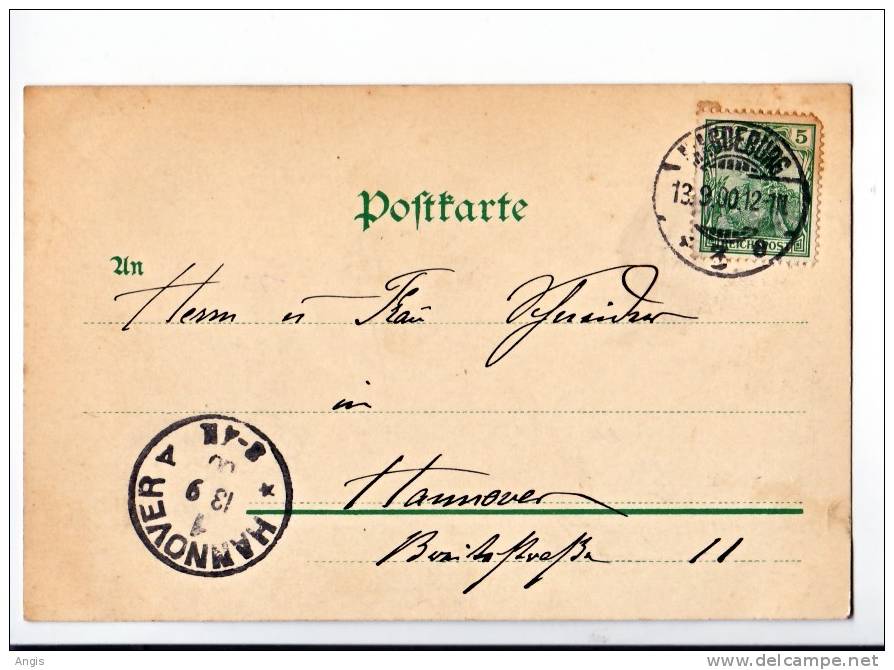 5
MAGDEBURG
13.9.00.12-1N
REICHSPOST
Postkarte
An
Herrn u Frau Schneider
in
Hannover
Breitestraße 11
HANNOVER
1
13 9
00
Angis
delcampe.net